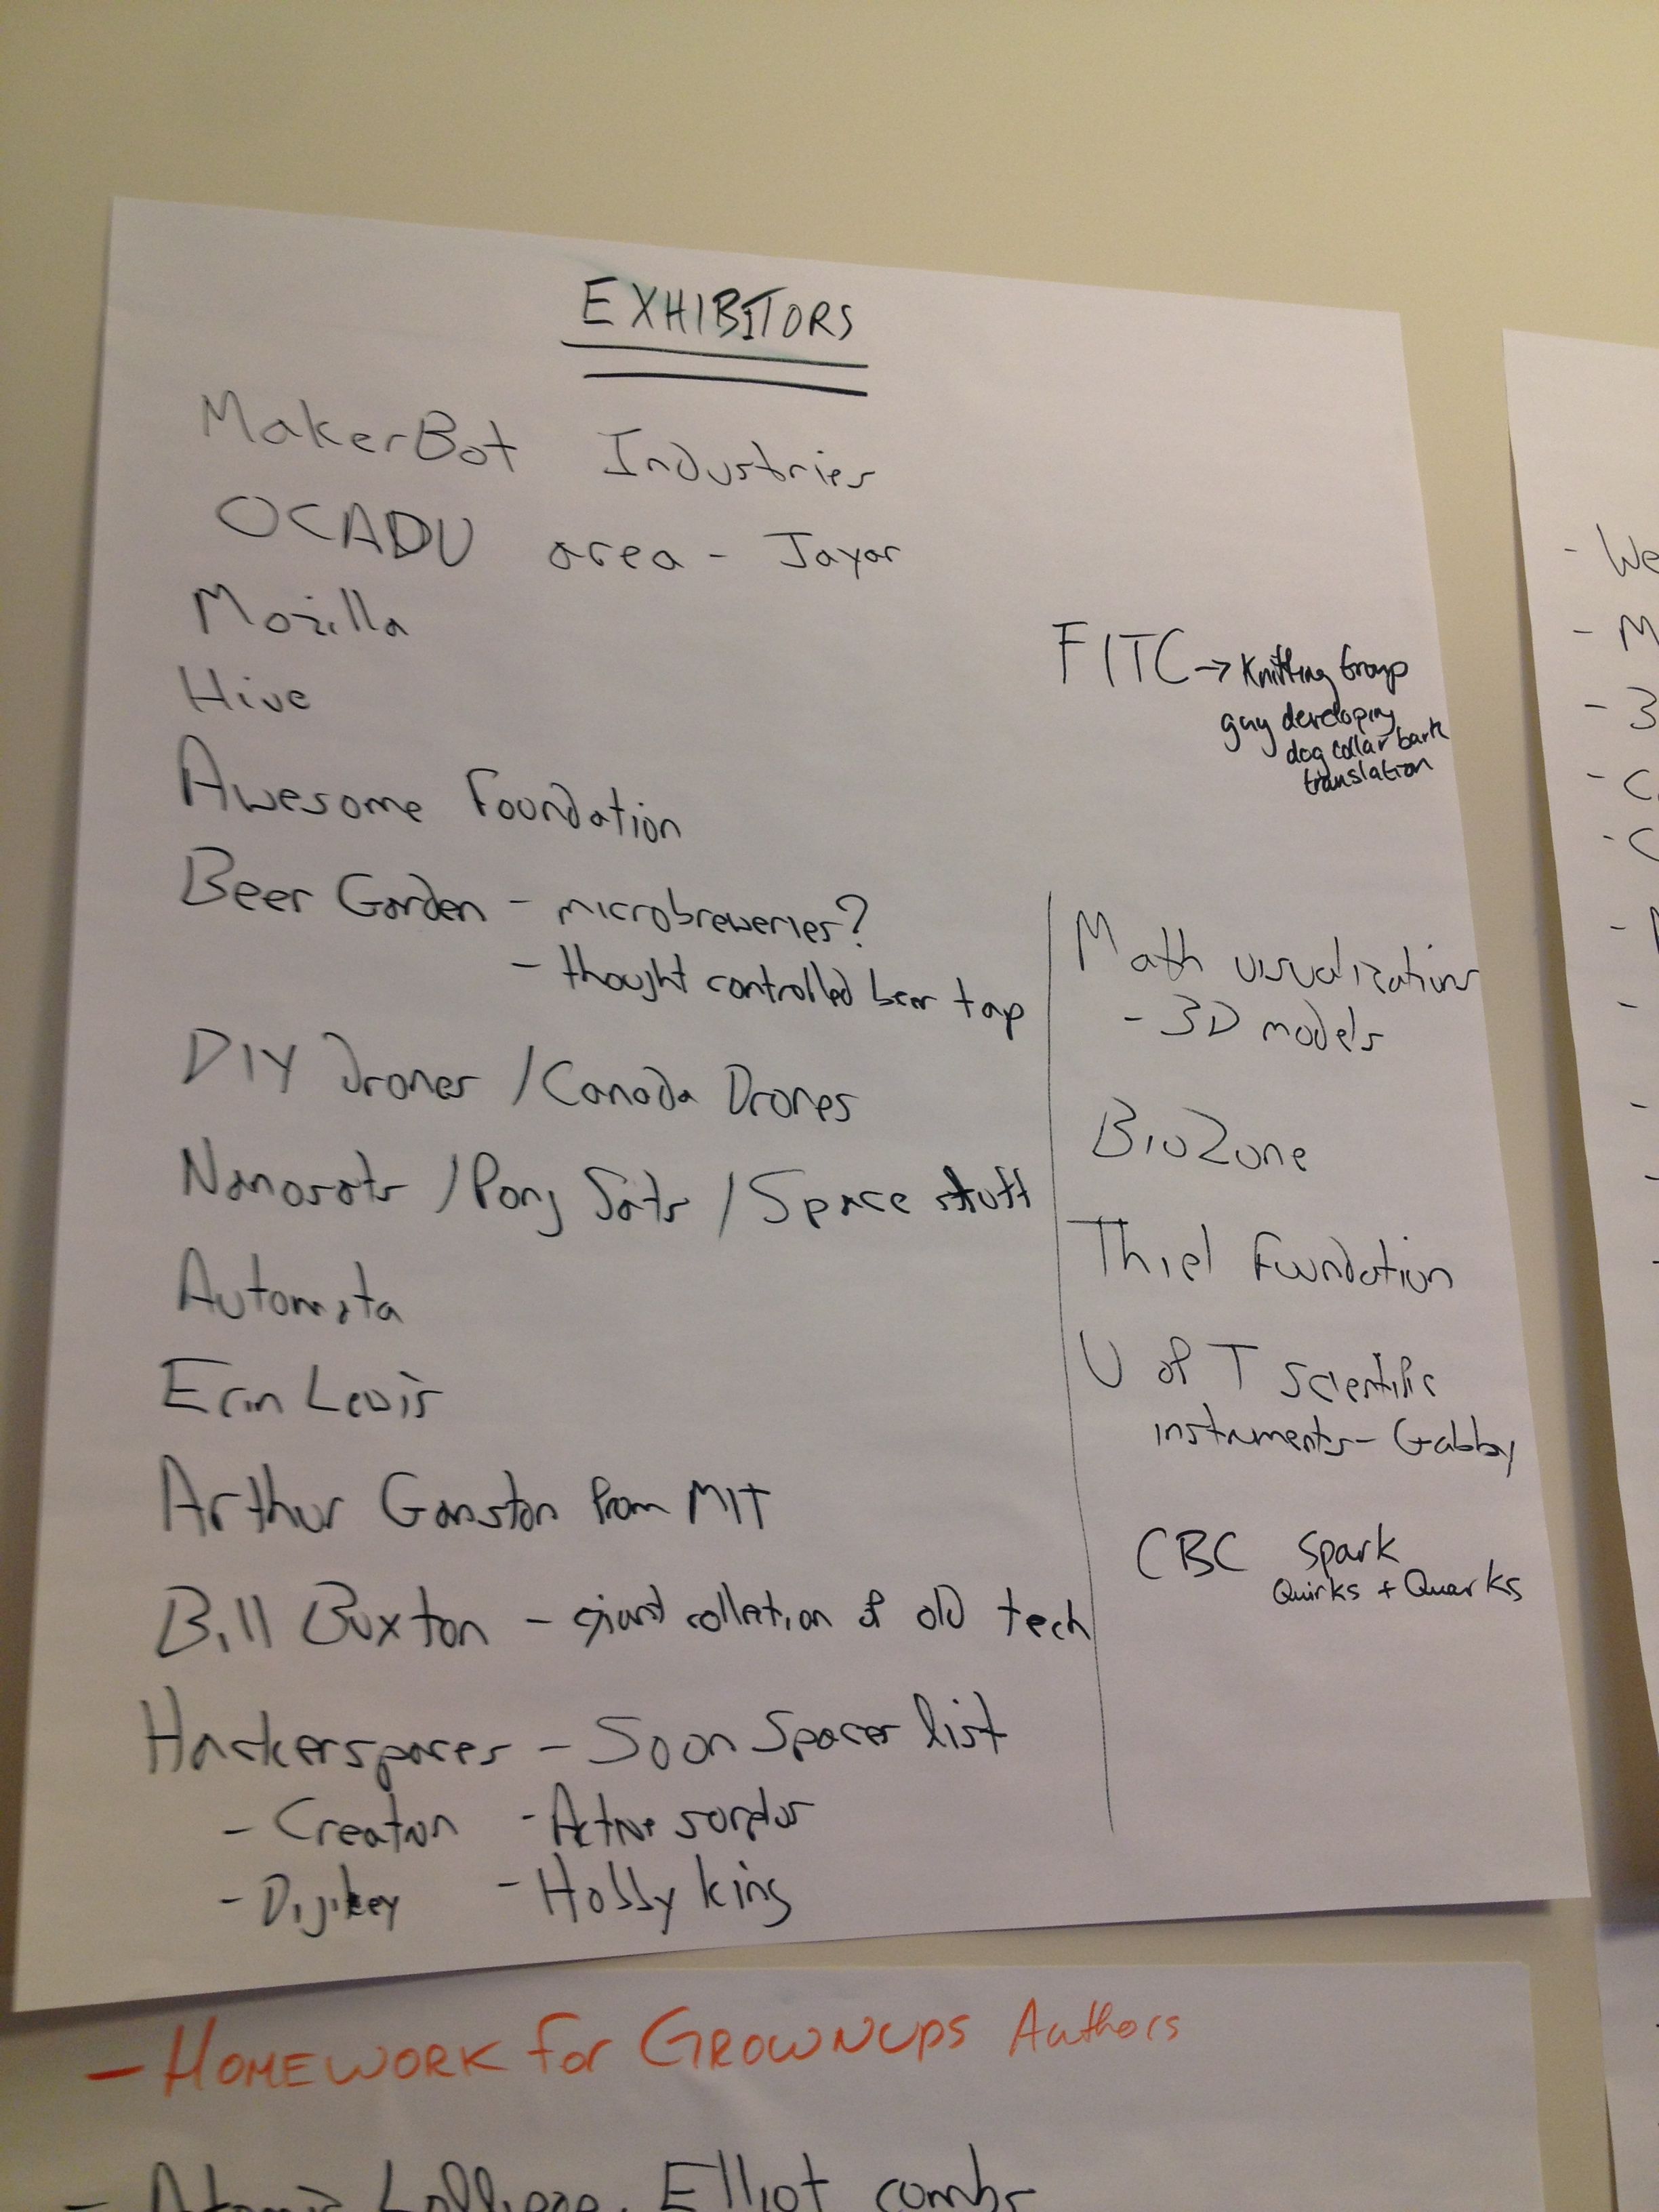 EXHIBITORS
MakerBot Industries
OCADU area - Jayar
Mozilla
Hive
Awesome Foundation
Beer Garden - microbreweries?
- thought controlled beer tap
DIY Drones / Canada Drones
Nanosats / Pong Sats / Space stuff
Automata
Erin Lewis
Arthur Ganston from MIT
Bill Buxton - giant collection of old tech
Hackerspaces - Soon Spacer list
- Creatron - Active surplus
- Digikey - Hobby king
FITC → Knitting Group
guy developing
dog collar bark
translation
Math visualizations
- 3D models
BioZone
Thiel Foundation
U of T Scientific
instruments - Gabby
CBC Spark
Quirks + Quarks
- HOMEWORK for GROWNUPS Authors
- Atomic Lollipop, Elliot combs
- We
- M
- 3
- C
- C